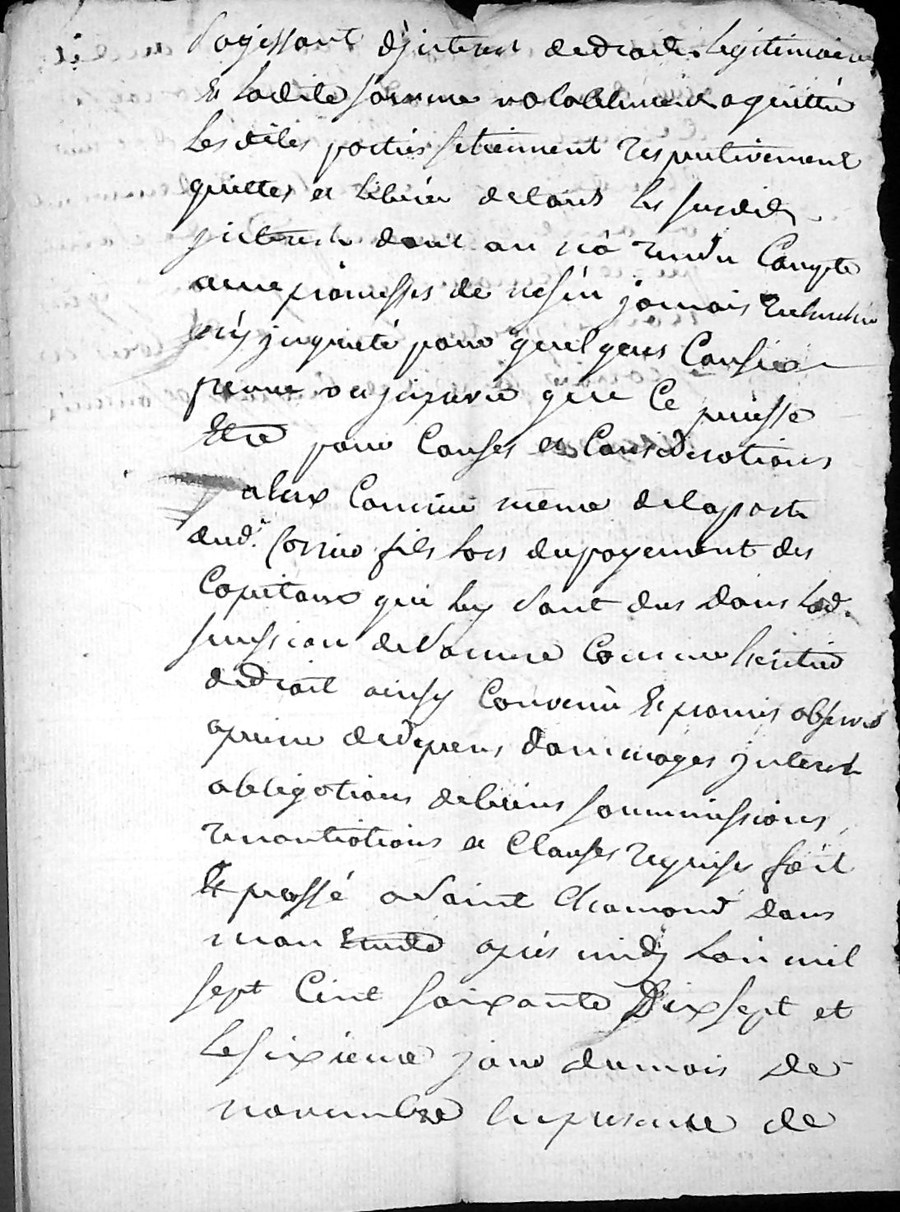 s'agissant d'interest de droits legitimaires
Et ladite somme valablement aquittée
Lesdites parties se tiennent respectivement
quittes et liberée de tous les susdits
interests dont on n'a rendu Compte
avec promesses de n'estre jamais recherché
ny inquieté pour quelques Causes
que Ce puisse
Etre pour Causes et Considerations
a eux Connüe même de la part
dud. fils lors du payement des
Capitaux qui luy sont dus dans lad.
sucession de Comme heritier
de droit ainsy Convenu Et promis observer
a peine de depens dommages interests
obligations de biens soummissions
renontiations et Clauses requises fait
Et passé a Saint Chamond dans
mon Etude apres midy L'an mil
sept Cent soixante Dix sept et
Le sixieme jour du mois de
novembre En presence de